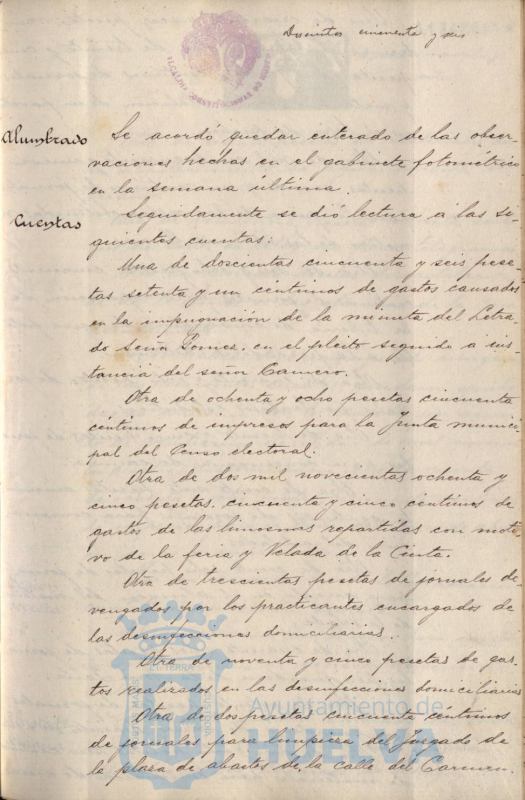 Doscientos cincuenta y seis
ALCALDIA CONSTITUCIONAL DE HUELVA
Alumbrado
Se acordó quedar enterado de las obser-
vaciones hechas en el gabinete fotométrico
en la semana última.
Cuentas
Seguidamente se dió lectura a las si-
guientes cuentas:
Una de doscientas cincuenta y seis pese-
tas setenta y un céntimos de gastos causados
en la impugnación de la minuta del Letra-
do Señor Gomez, en el pleito seguido a ins-
tancia del señor Carnero.
Otra de ochenta y ocho pesetas cincuenta
céntimos de impresos para la Junta munici-
pal del Censo electoral.
Otra de dos mil novecientas ochenta y
cinco pesetas, cincuenta y cinco céntimos de
gastos de las limosnas repartidas con moti-
vo de la feria y Velada de la Cinta.
Otra de trescientas pesetas de jornales de-
vengados por los practicantes encargados de
las desinfecciones domiciliarias.
Otra de noventa y cinco pesetas de gas-
tos realizados en las desinfecciones domiciliarias
Otra de dos pesetas cincuenta céntimos
de jornales para limpieza del Juzgado de
la plaza de abastos de la calle del Carmen.
Ayuntamiento de
HUELVA